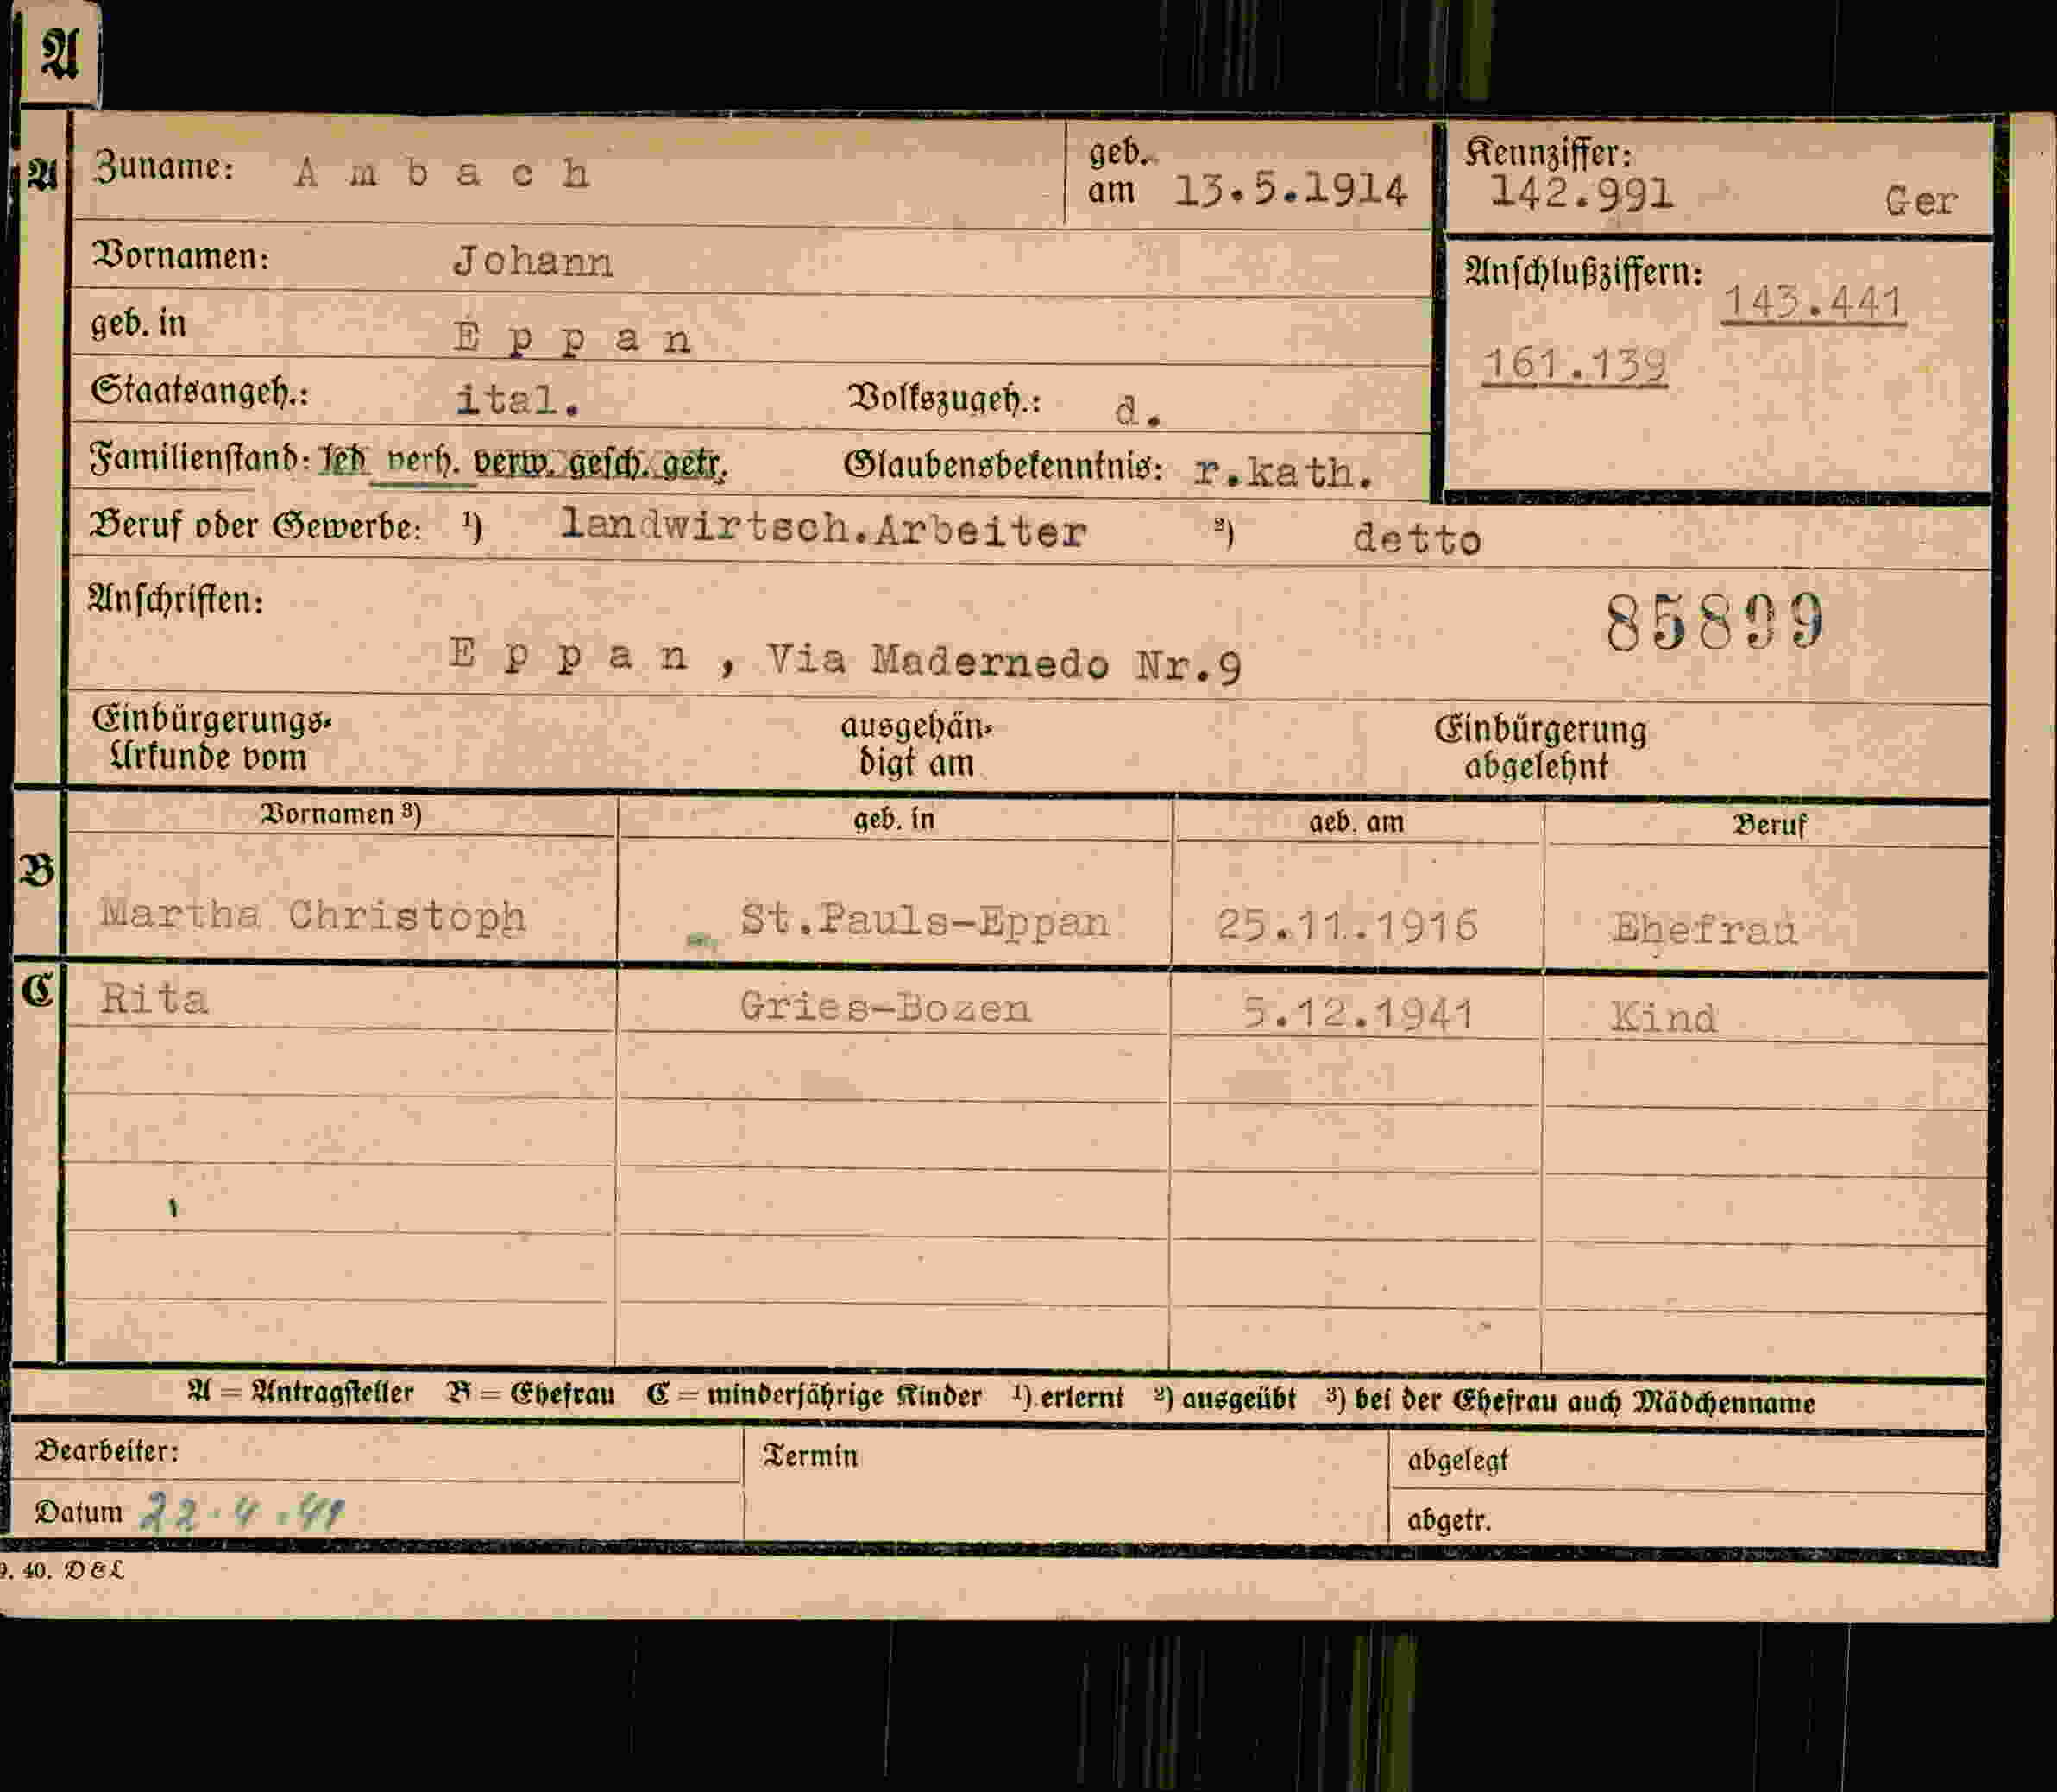 A
A Zuname: Ambach geb. am 13.5.1914 Kennziffer: 142.991 Ger
Vornamen: Johann Anschlußziffern: 143.441
geb. in Eppan 161.139
Staatsangeh.: ital. Volkszugeh.: d.
Familienstand: led verh. verw. gesch. getr. Glaubensbekenntnis: r.kath.
Beruf oder Gewerbe: ¹) landwirtsch.Arbeiter ²) detto
Anschriften: 85899
Eppan, Via Madernedo Nr.9
Einbürgerungs-Urkunde vom ausgehändigt am Einbürgerung abgelehnt
Vornamen ³) geb. in geb. am Beruf
B Martha Christoph St.Pauls-Eppan 25.11.1916 Ehefrau
C Rita Gries-Bozen 5.12.1941 Kind
A = Antragsteller B = Ehefrau C = minderjährige Kinder ¹) erlernt ²) ausgeübt ³) bei der Ehefrau auch Mädchenname
Bearbeiter: Termin abgelegt
Datum 22.4.41 abgetr.
9. 40. D&L